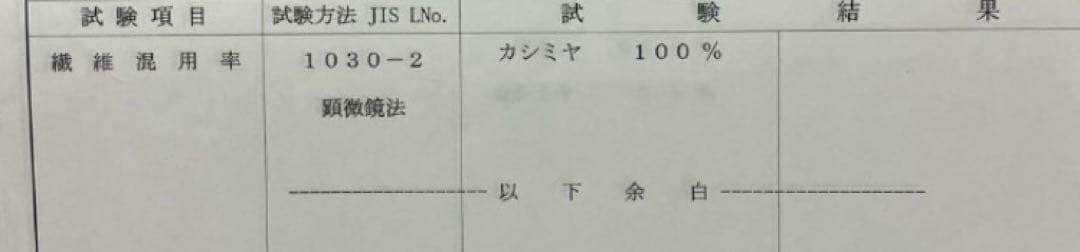 試験項目 試験方法 JIS LNo. 試験結果
繊維混用率 1030-2 カシミヤ 100%
顕微鏡法
以下余白